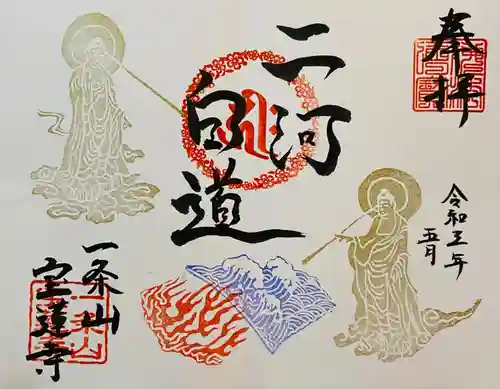 奉拝
令和五年
五月
二河
白道
一条山
宝蓮寺